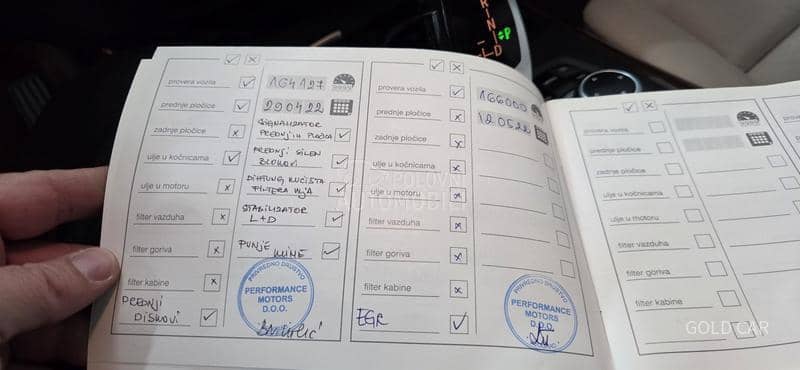 R
I
N
D
P
provera vozila
prednje pločice
zadnje pločice
ulje u kočnicama
ulje u motoru
filter vazduha
filter goriva
filter kabine
PREDNJI
DISKOVI
164127
290422
SIGNALIZATOR
PREDNJIH PLOČICA
PREDNJI SILEN
BLOKOVI
DIHTUNG KUĆIŠTA
FILTERA ULJA
STABILIZATOR
L+D
PUNJE
KLIME
PRIVREDNO DRUŠTVO
PERFORMANCE
MOTORS
D.O.O.
provera vozila
prednje pločice
zadnje pločice
ulje u kočnicama
ulje u motoru
filter vazduha
filter goriva
filter kabine
EGR
166000
120522
PRIVREDNO DRUŠTVO
PERFORMANCE
MOTORS
D.O.O.
POLOVNI
AUTOMOBILI
provera vozila
prednje pločice
zadnje pločice
ulje u kočnicama
ulje u motoru
filter vazduha
filter goriva
filter kabine
GOLD CAR